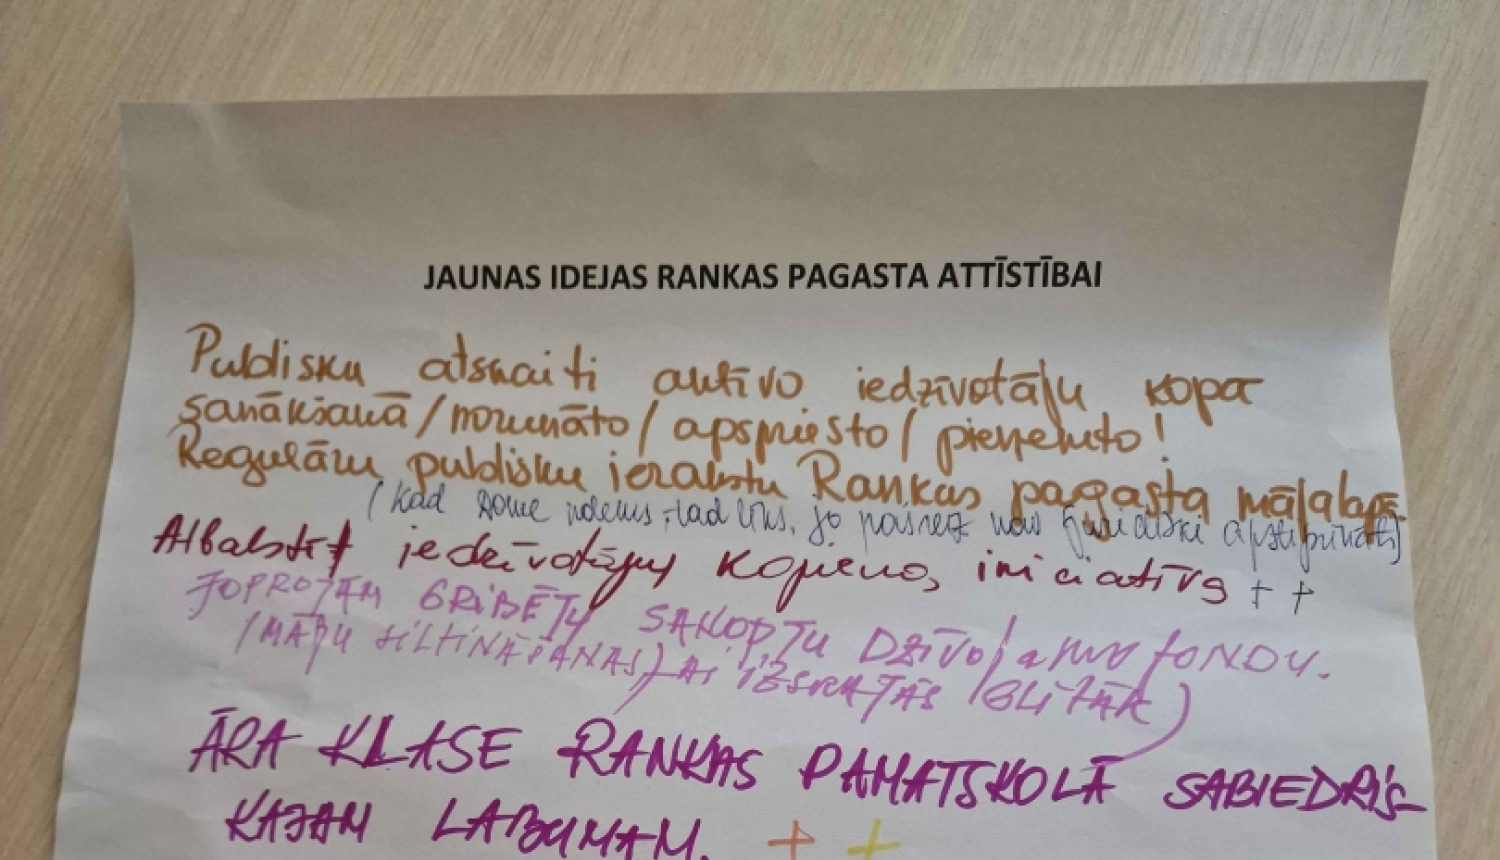 JAUNAS IDEJAS RANKAS PAGASTA ATTĪSTĪBAI
Publisku atskaiti aktīvo iedzīvotāju kopā
sanākšanā/norunāto/apspriesto/pieņemto!
Regulāru publisku ierakstu Rankas pagasta mājalapā
(Kad dome nolems, tad liks, jo pašreiz nav juridiski apstiprināti)
Atbalstīt iedzīvotāju kopienas iniciatīvas ++
JOPROJĀM GRIBĒTU SAKOPTU DZĪVOJAMO FONDU.
(MĀJU SILTINĀŠANAS, LAI IZSKATĀS GLĪTĀK)
ĀRA KLASE RANKAS PAMATSKOLĀ SABIEDRIS-
KAJAM LABUMAM. + +